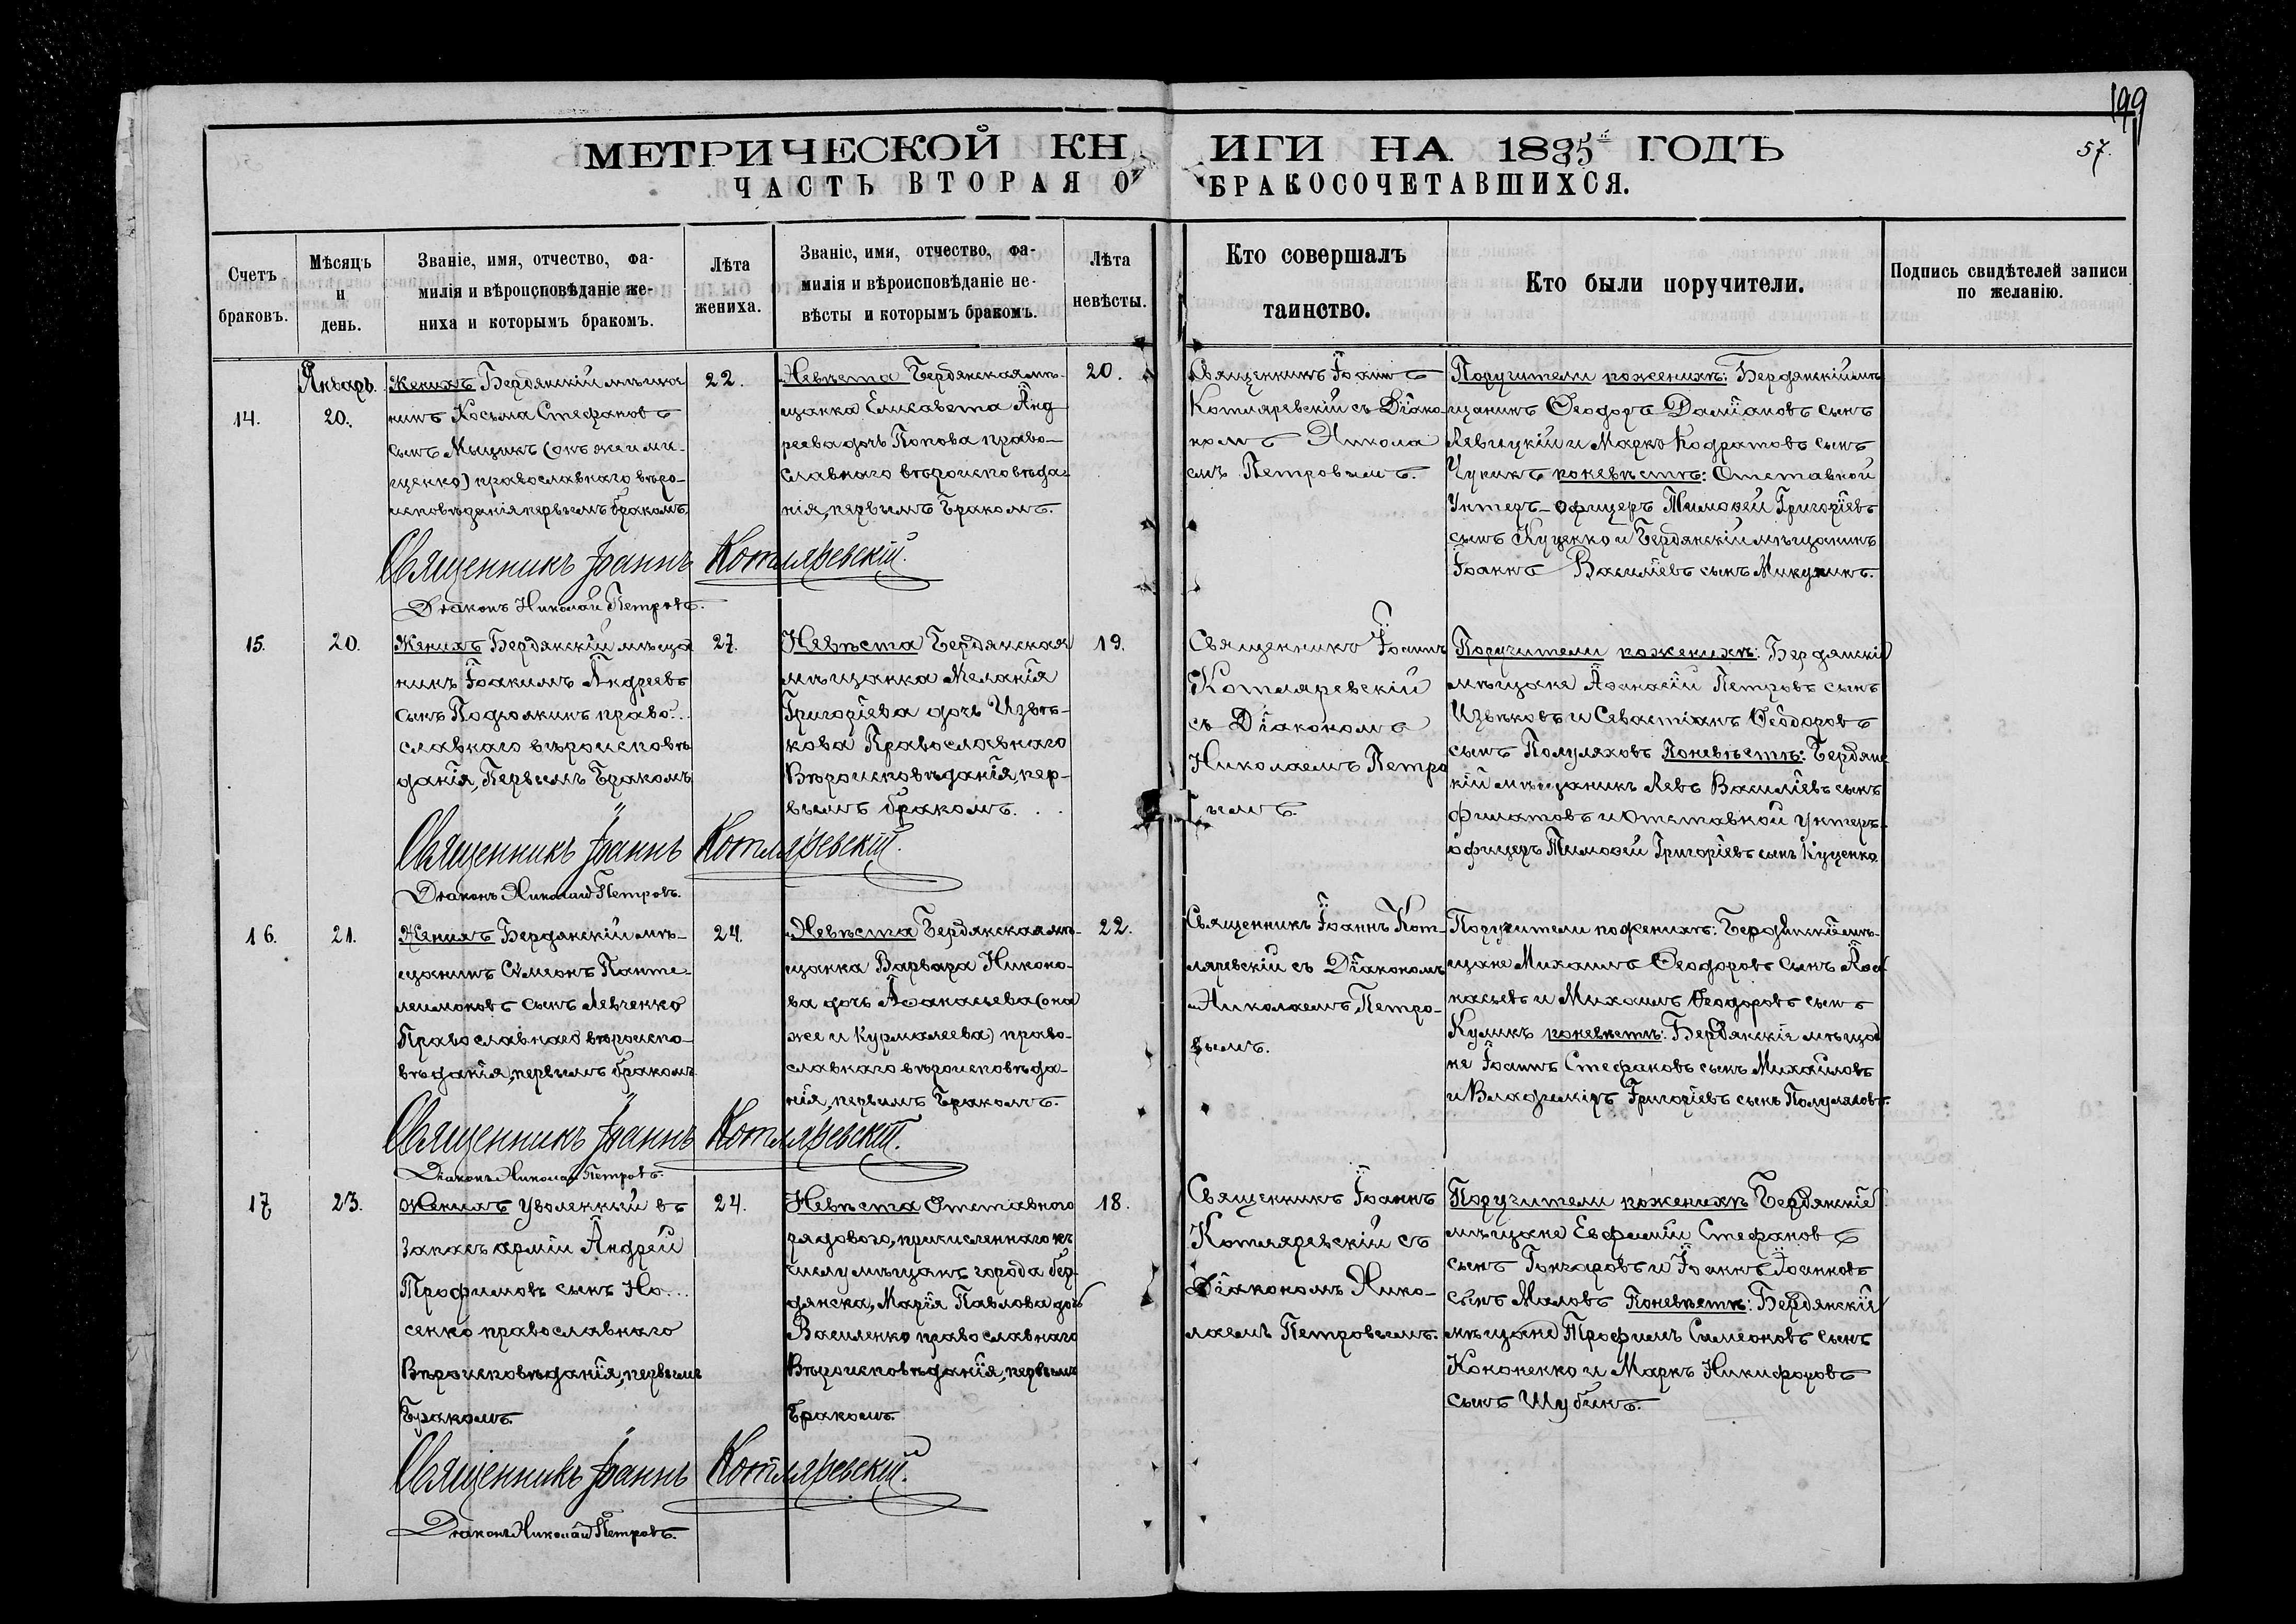 199
57.
МЕТРИЧЕСКОЙ КНИГИ НА 1895й ГОДЪ
ЧАСТЬ ВТОРАЯ О БРАКОСОЧЕТАВШИХСЯ.
Счетъ браковъ.
Мѣсяцъ и день.
Званіе, имя, отчество, фа-
милія и вѣроисповѣданіе же-
ниха и которымъ бракомъ.
Лѣта жениха.
Званіе, имя, отчество, фа-
милія и вѣроисповѣданіе не-
вѣсты и которымъ бракомъ.
Лѣта невѣсты.
Кто совершалъ
таинство.
Кто были поручители.
Подпись свидѣтелей записи
по желанію.
14.
Январь.
20.
Женихъ Бердянскій мѣща
нинъ Косьма Стефановъ
сынъ Мыцикъ (онъ же и Ми-
щенко) православнаго вѣро-
исповѣданія первымъ бракомъ
22.
Невѣста Бердянская мѣ-
щанка Елисавета Анд
реева дочь Попова право-
славнаго вѣроисповѣда-
нія, первымъ бракомъ.
20.
Священникъ Іоаннъ
Котляревскій съ Діако-
номъ Никола
емъ Петровымъ.
Поручители по женихѣ: Бердянскій мѣ
щанинъ Ѳеодоръ Даміановъ сынъ
Левицкій и Марко Кодратовъ сынъ
Чупикъ по невѣстѣ: Отставной
Унтеръ-офицеръ Тимоѳей Григоріевъ
сынъ Куценко и Бердянскій мѣщанинъ
Іоаннъ Василіевъ сынъ Микулинъ.
Священникъ Іоаннъ Котляревскій.
Діаконъ Николай Петровъ.
15.
20.
Женихъ Бердянскій мѣща
нинъ Іоакимъ Андреевъ
сынъ Подюжинъ право..
славнаго вѣроисповѣ
данія, Первымъ Бракомъ
27.
Невѣста Бердянская
мѣщанка Меланія
Григоріева дочь Извѣ-
кова Православнаго
Вѣроисповѣданія, пер-
вымъ бракомъ. . .
19.
Священникъ Іоаннъ
Котляревскій
съ Діакономъ
Николаемъ Петро
вымъ.
Поручители по женихѣ: Бердянскіе
мѣщане Аѳанасій Петровъ сынъ
Извѣковъ и Севастіанъ Ѳеодоровъ
сынъ Полуляховъ По невѣстѣ: Бердянс
кій мѣщанинъ Левъ Василіевъ сынъ
Филатовъ и Отставной Унтеръ-
офицеръ Тимоѳей Григоріевъ сынъ Куценко
Священникъ Іоаннъ Котляревскій.
Діаконъ Николай Петровъ.
16.
21.
Женихъ Бердянскій мѣ-
щанинъ Сѵмеонъ Панте-
леимоновъ сынъ Левченко
Православнаго вѣроиспо-
вѣданія, первымъ бракомъ
24.
Невѣста Бердянская мѣ-
щанка Варвара Никоно-
ва дочь Аѳанасьева (она
же и Курмалеева) право-
славнаго вѣроисповѣда-
нія, первымъ бракомъ.
22.
Священникъ Іоаннъ Кот-
ляревскій съ Діакономъ
Николаемъ Петро-
вымъ.
Поручители по женихѣ: Бердянскіе мѣ-
щане Михаилъ Ѳеодоровъ сынъ Аѳа
насьевъ и Михаилъ Ѳеодоровъ сынъ
Куликъ по невѣстѣ: Бердянскіе мѣща
не Іоаннъ Стефановъ сынъ Михайловъ
и Владиміръ Григоріевъ сынъ Полуляховъ.
Священникъ Іоаннъ Котляревскій.
Діаконъ Николай Петровъ.
17
23.
Женихъ Уволенный въ
запасъ арміи Андрей
Трофимовъ сынъ Но...
сенко православнаго
Вѣроисповѣданія, первымъ
Бракомъ.
24.
Невѣста Отставного
рядового, причисленнаго къ
числу мѣщанъ города Бер-
дянска, Марія Павлова дочь
Василенко православнаго
Вѣроисповѣданія, первымъ
Бракомъ.
18.
Священникъ Іоаннъ
Котляревскій съ
Діакономъ Нико-
лаемъ Петровымъ.
Поручители по женихѣ Бердянскіе
мѣщане Евфимій Стефановъ
сынъ Гончаровъ и Іоаннъ Іоанновъ
сынъ Маловъ По невѣстѣ: Бердянскіе
мѣщане Трофимъ Симеоновъ сынъ
Кононенко и Маркъ Никифоровъ
сынъ Шубинъ.
Священникъ Іоаннъ Котляревскій.
Діаконъ Николай Петровъ.